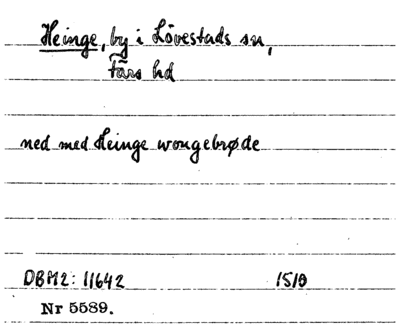 Heinge, by i Lövestads sn,
Färs hd
ned med Heinge wongebrøde
DBM2: 11642 1510
Nr 5589.